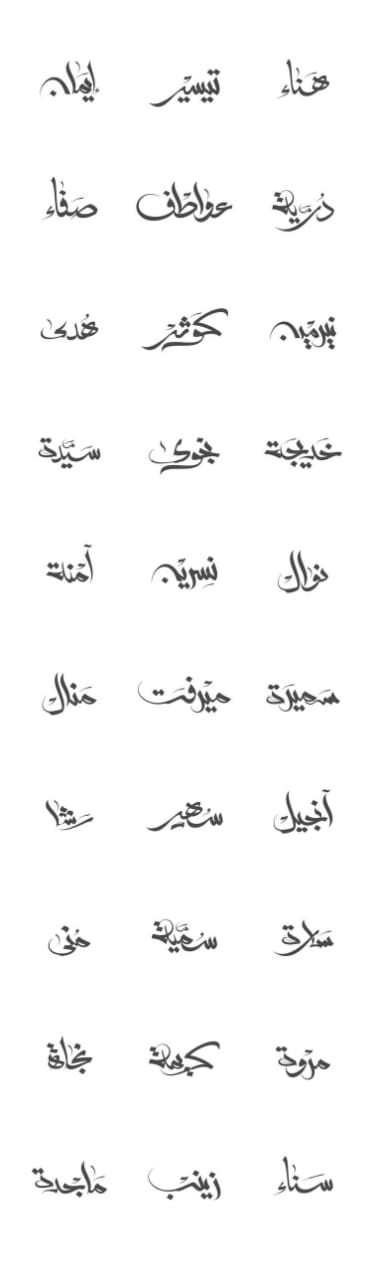 هَنَاء تيسير إيمَان
دُرِّيَّة عواطف صَفَاء
نيرمين كَوْثَر هُدى
خَديجَة نجوى سَيِّدة
نوال نِسرين آمْنة
سَميرَة ميْرفَت مَنال
آنجيل سُهير رَشا
سَارة سُميَّة مُنى
مرْوة كريمة نجاة
سَنَاء زينب مَاجدة